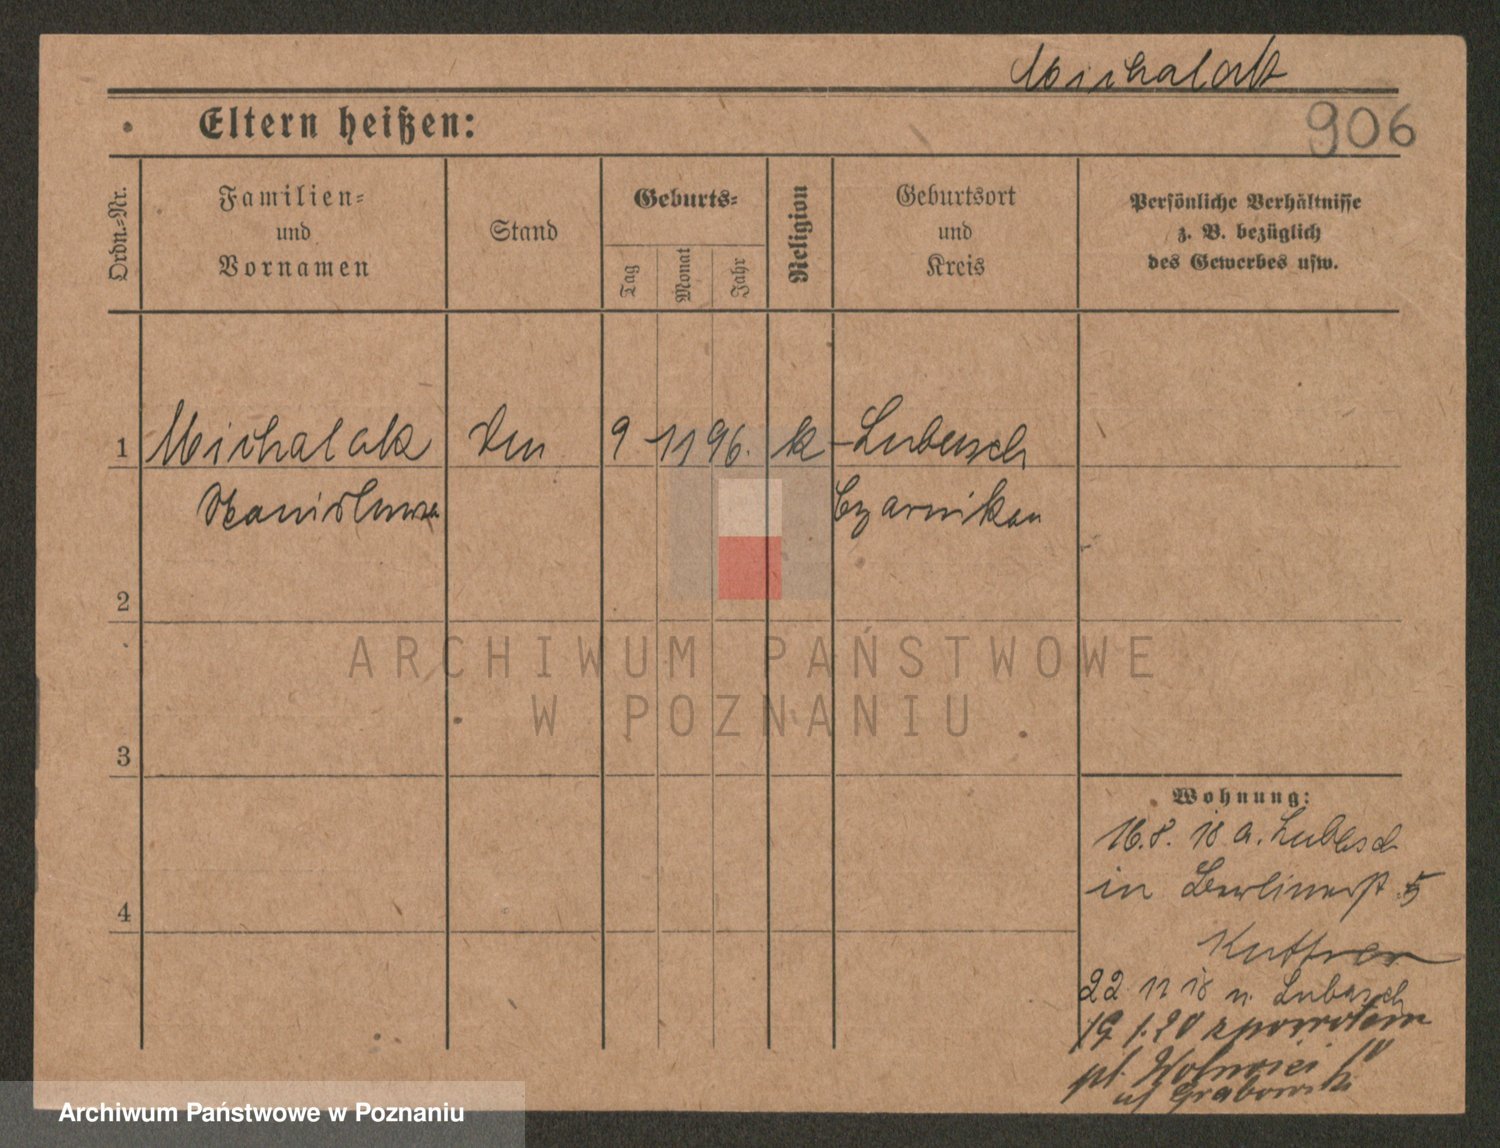 Michalak
Eltern heißen:
906
Ordn.-Nr.
Familien-
und
Vornamen
Stand
Geburts-
Tag
Monat
Jahr
Religion
Geburtsort
und
Kreis
Persönliche Verhältnisse
z. B. bezüglich
des Gewerbes usw.
1 Michalak 9 11 96. k Lubasch
Stanislawa Czarnikau
2
ARCHIWUM PAŃSTWOWE
W POZNANIU
3
4
Wohnung:
16.8. 18 a. Lubasch
in Berlinerst 5
Kuttner
22 11 18 n. Lubasch
19 1.20 z powrotem
pl. Wolności 10
Grabowski
Archiwum Państwowe w Poznaniu